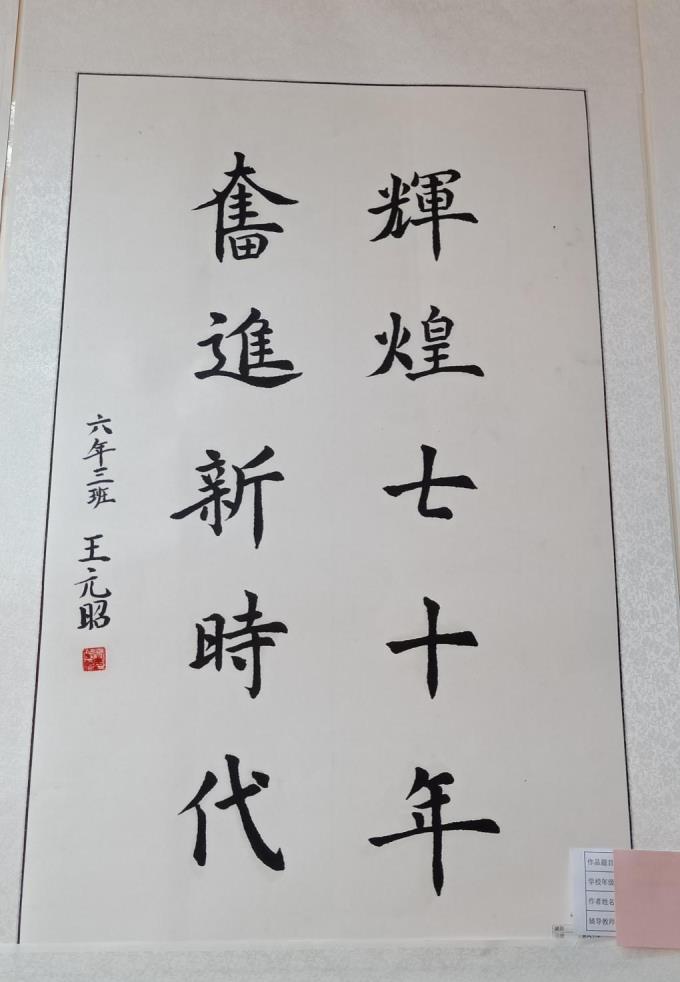 輝煌七十年
奮進新時代
六年三班 王元昭
作品题目
学校年级
作者姓名
辅导教师